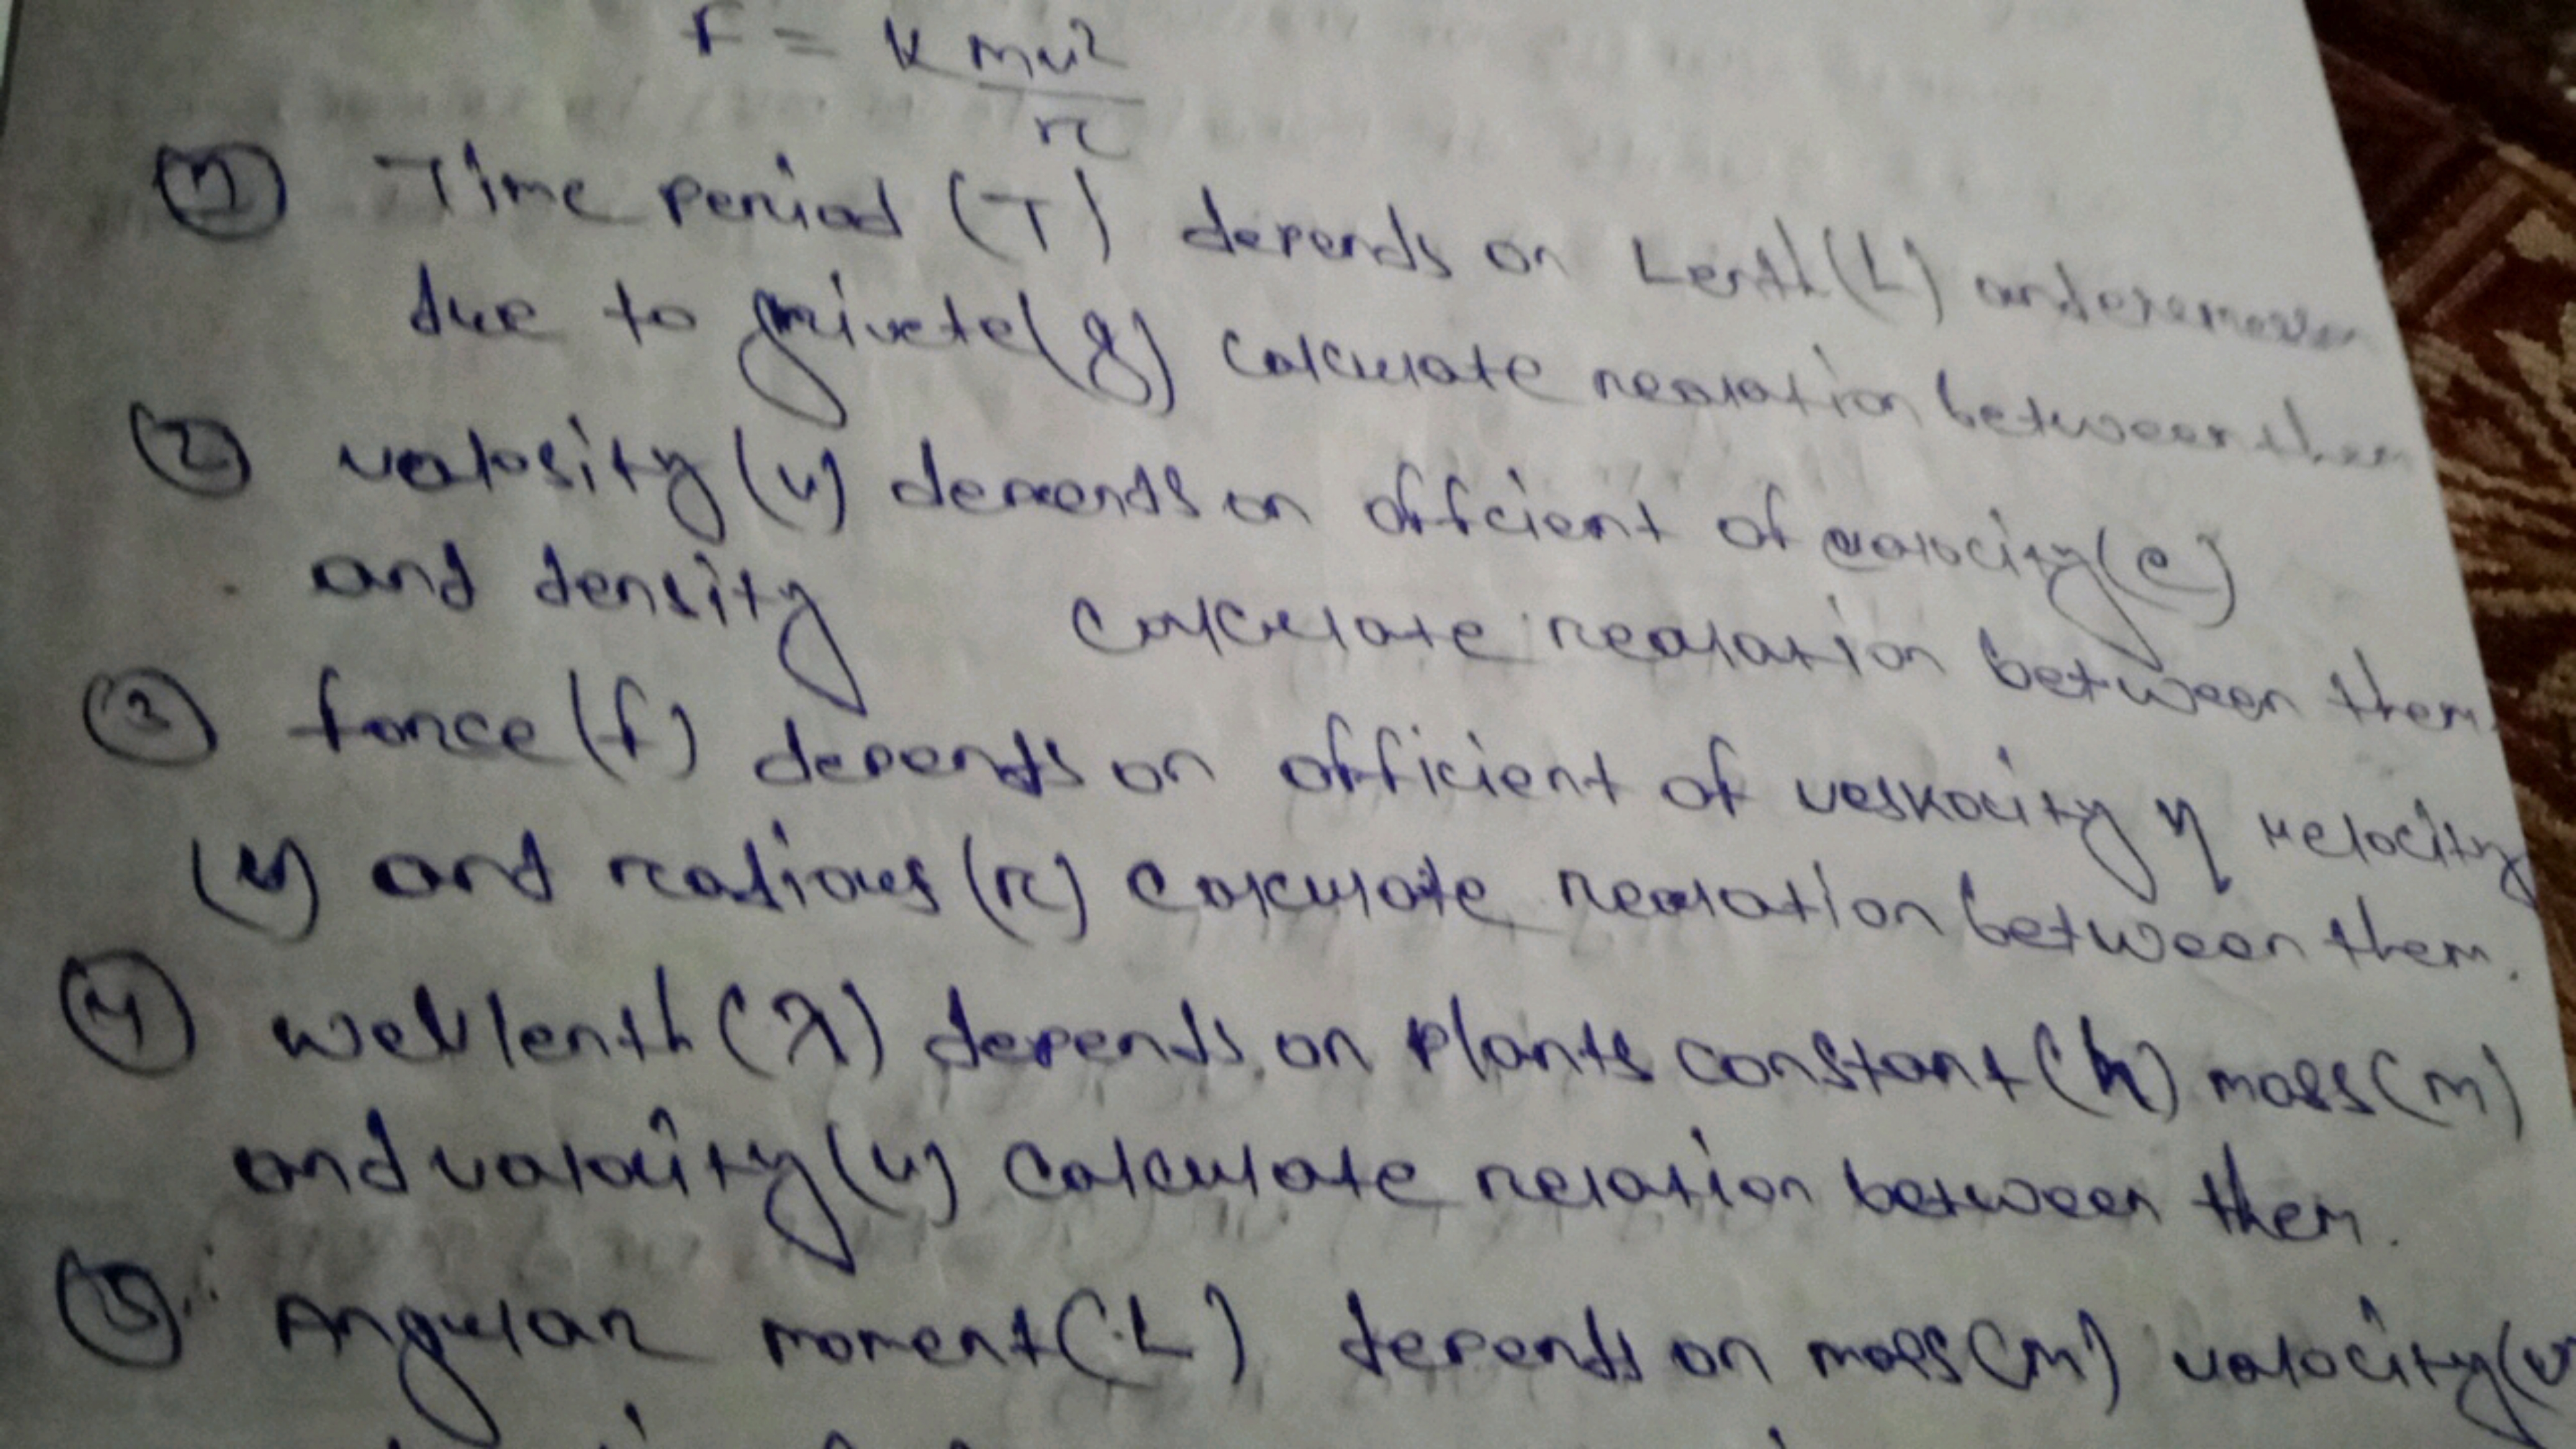 F = K mv²/r
① Time period (T) depends on Lenth (L) and
due to grivete (g) calculate realation between them
② valosity (v) depends on offcient of valocity (e)
and density calculate realation between them.
③ force (f) depends on officient of veskocity η velocity
(v) and radious (r) calculate realation between them.
④ wevlenth (λ) depends on Plants constant (h) mass (m)
and valocity (v) calculate relation between them.
⑤ Angular moment (L) depends on mass (m) valocity (v